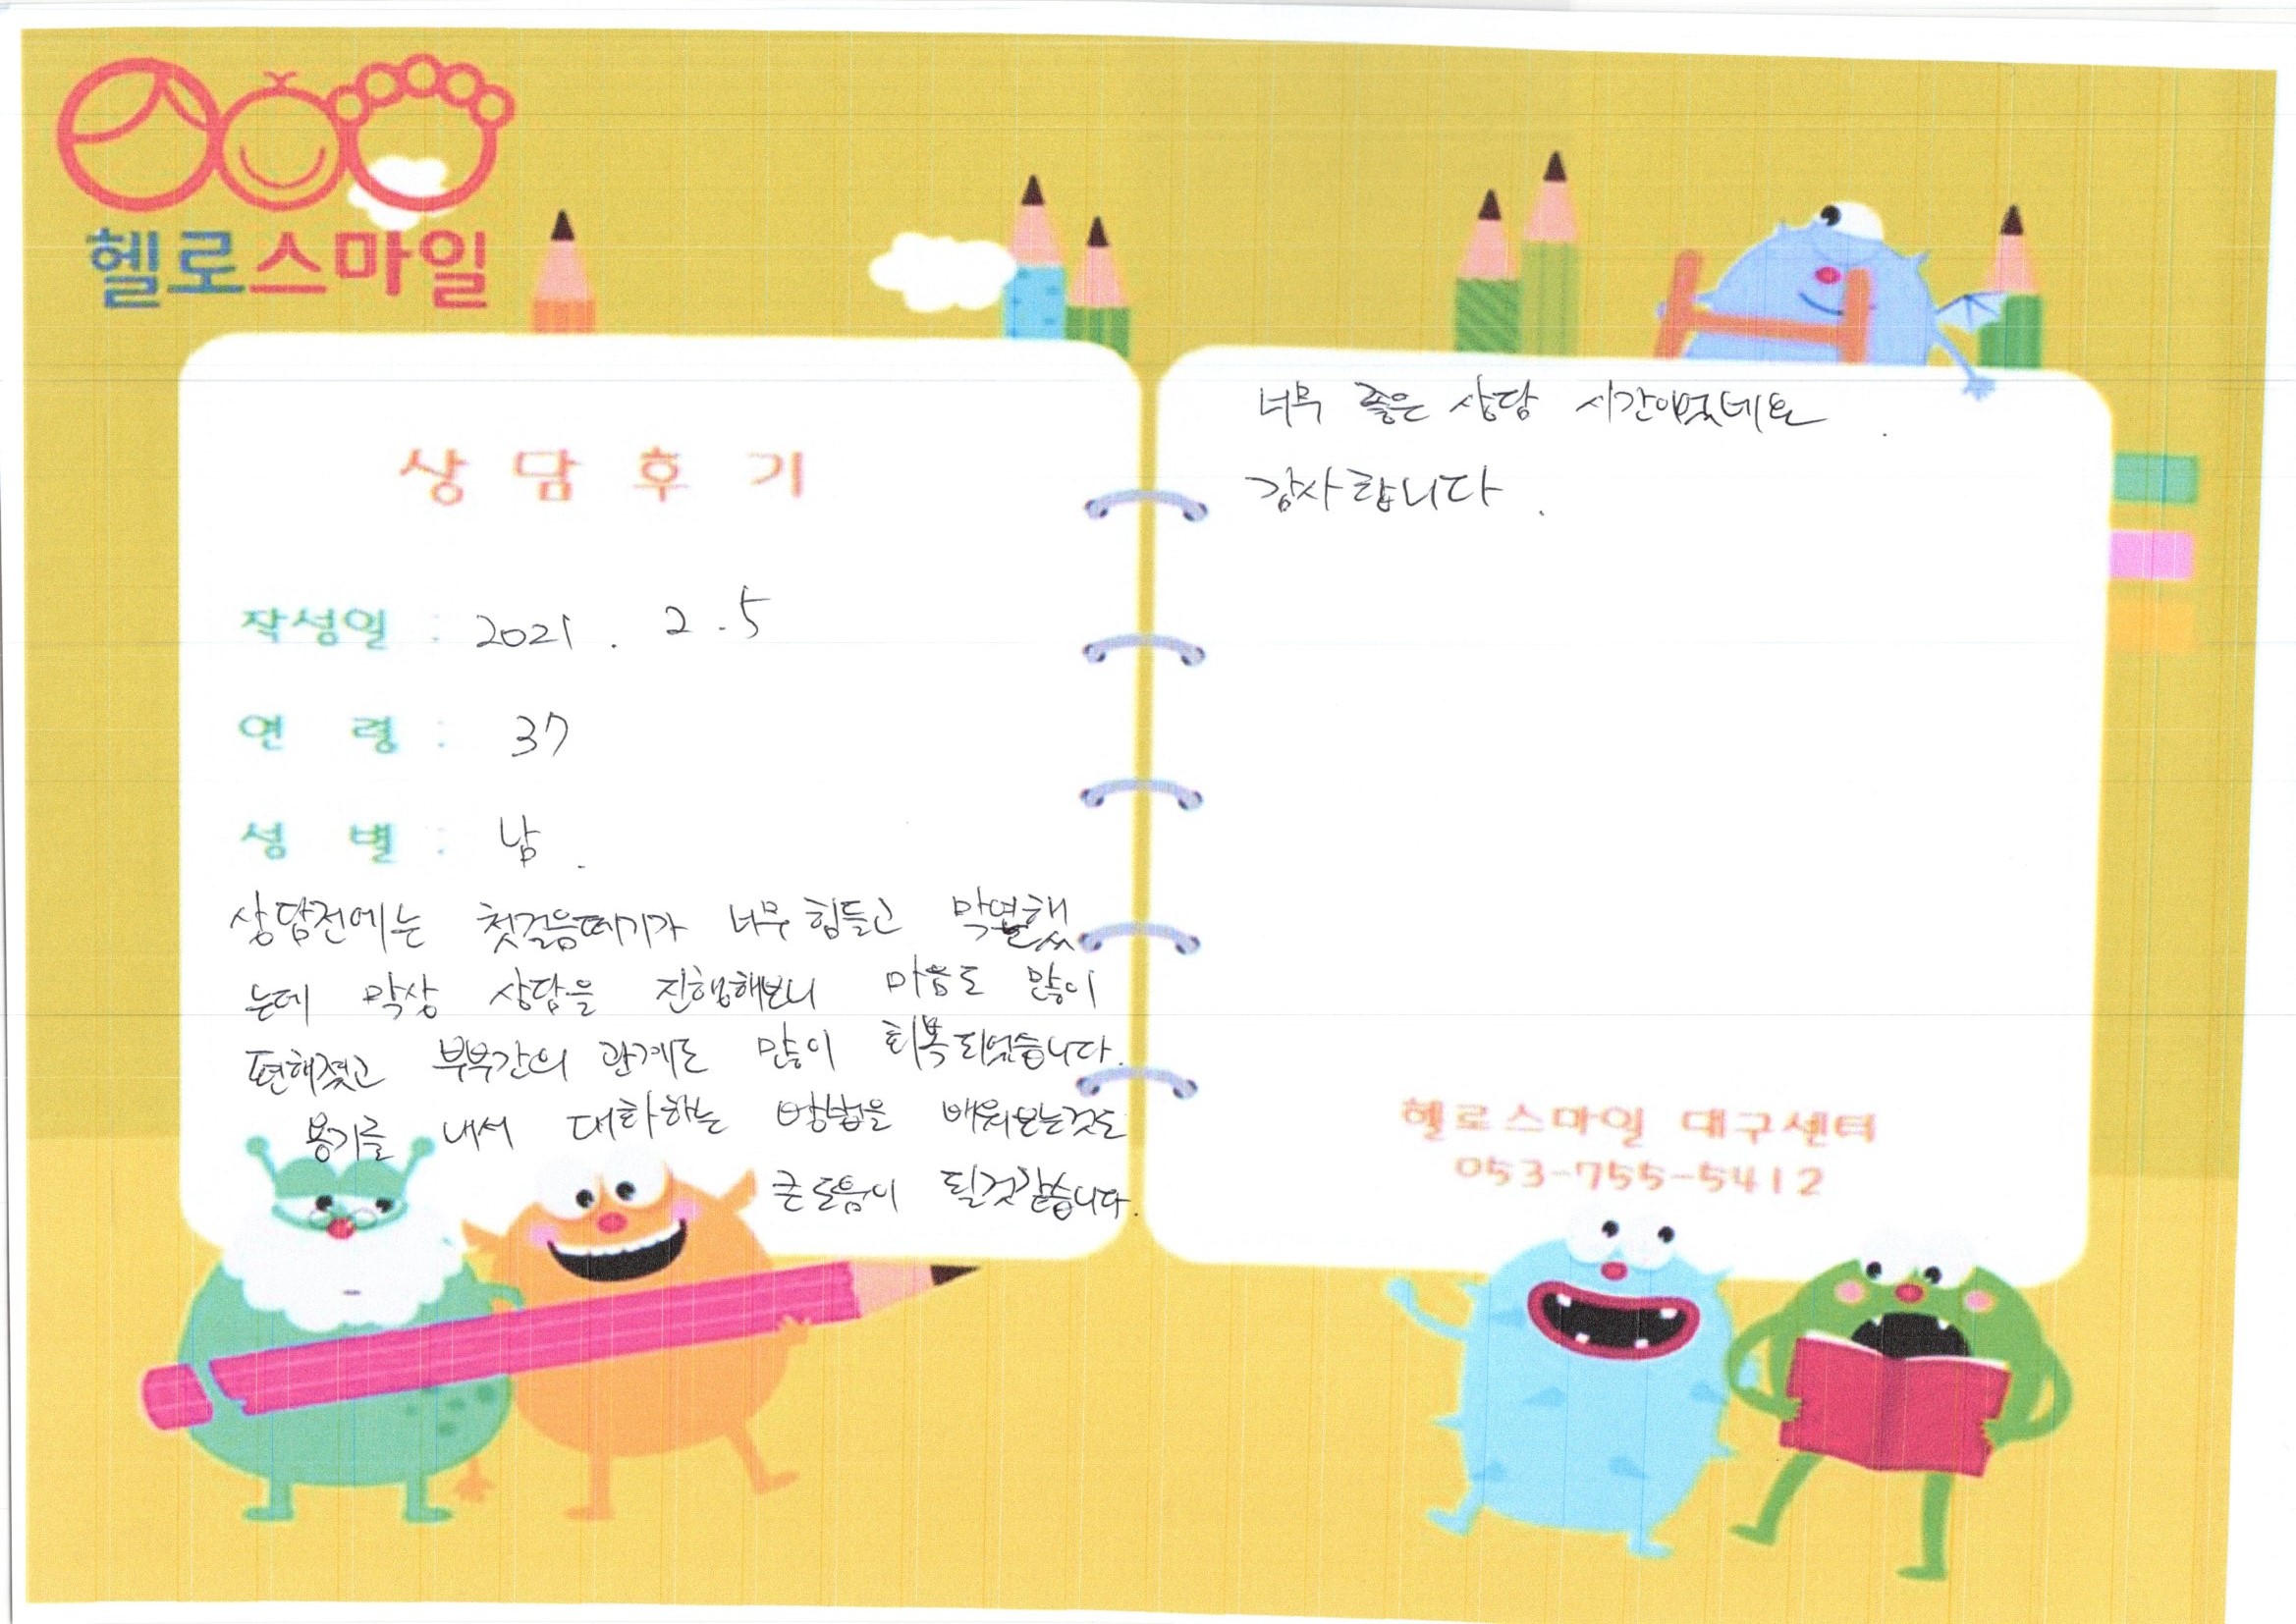 헬로스마일
상 담 후 기
작성일 : 2021 . 2 . 5
연 령 : 37
성 별 : 남 .
상담전에는 첫걸음떼기가 너무 힘들고 막연했
는데 막상 상담을 진행해보니 마음도 많이
편해졌고 부부간의 관계도 많이 회복되었습니다.
용기를 내서 대화하는 방법을 배워보는것도
큰 도움이 될것같습니다.
너무 좋은 상담 시간이었네요 .
감사합니다 .
헬로스마일 대구센터
053-755-5412